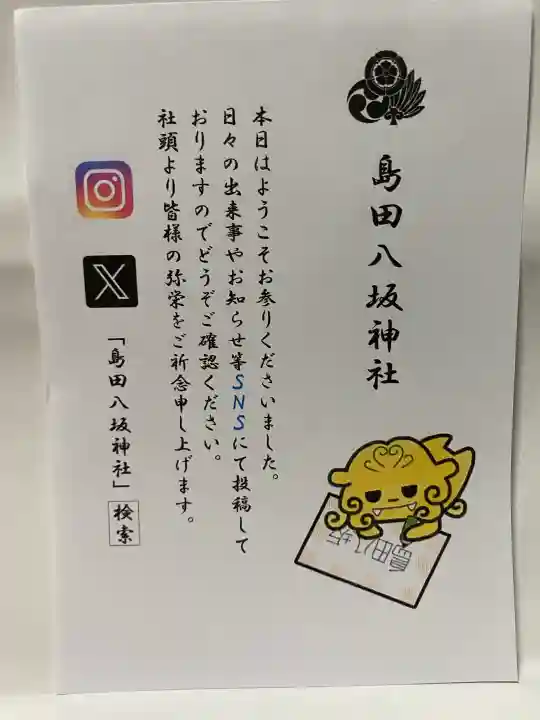 島田八坂神社
本日はようこそお参りくださいました。
日々の出来事やお知らせ等SNSにて投稿して
おりますのでどうぞご確認ください。
社頭より皆様の弥栄をご祈念申し上げます。
「島田八坂神社」検索
島田八坂